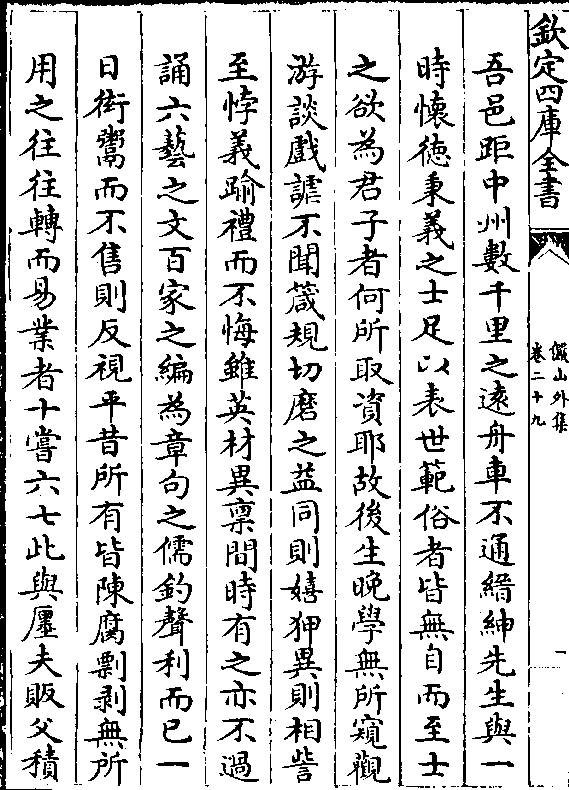 欽定四庫全書
假山外集
卷二十九
一
吾邑距中州數千里之遠舟車不通縉紳先生與一
時懷徳秉義之士足以表世範俗者皆無自而至士
之欲為君子者何所取資耶故後生晚學無所窺觀
游談戲謔不聞箴規切磨之益同則嬉狎異則相訾
至悖義踰禮而不悔雖英材異禀間時有之亦不過
誦六藝之文百家之編為章句之儒釣聲利而已一
日衒鬻而不售則反視平昔所有皆陳腐剽剥無所
用之往往轉而易業者十嘗六七此與廛夫販父積